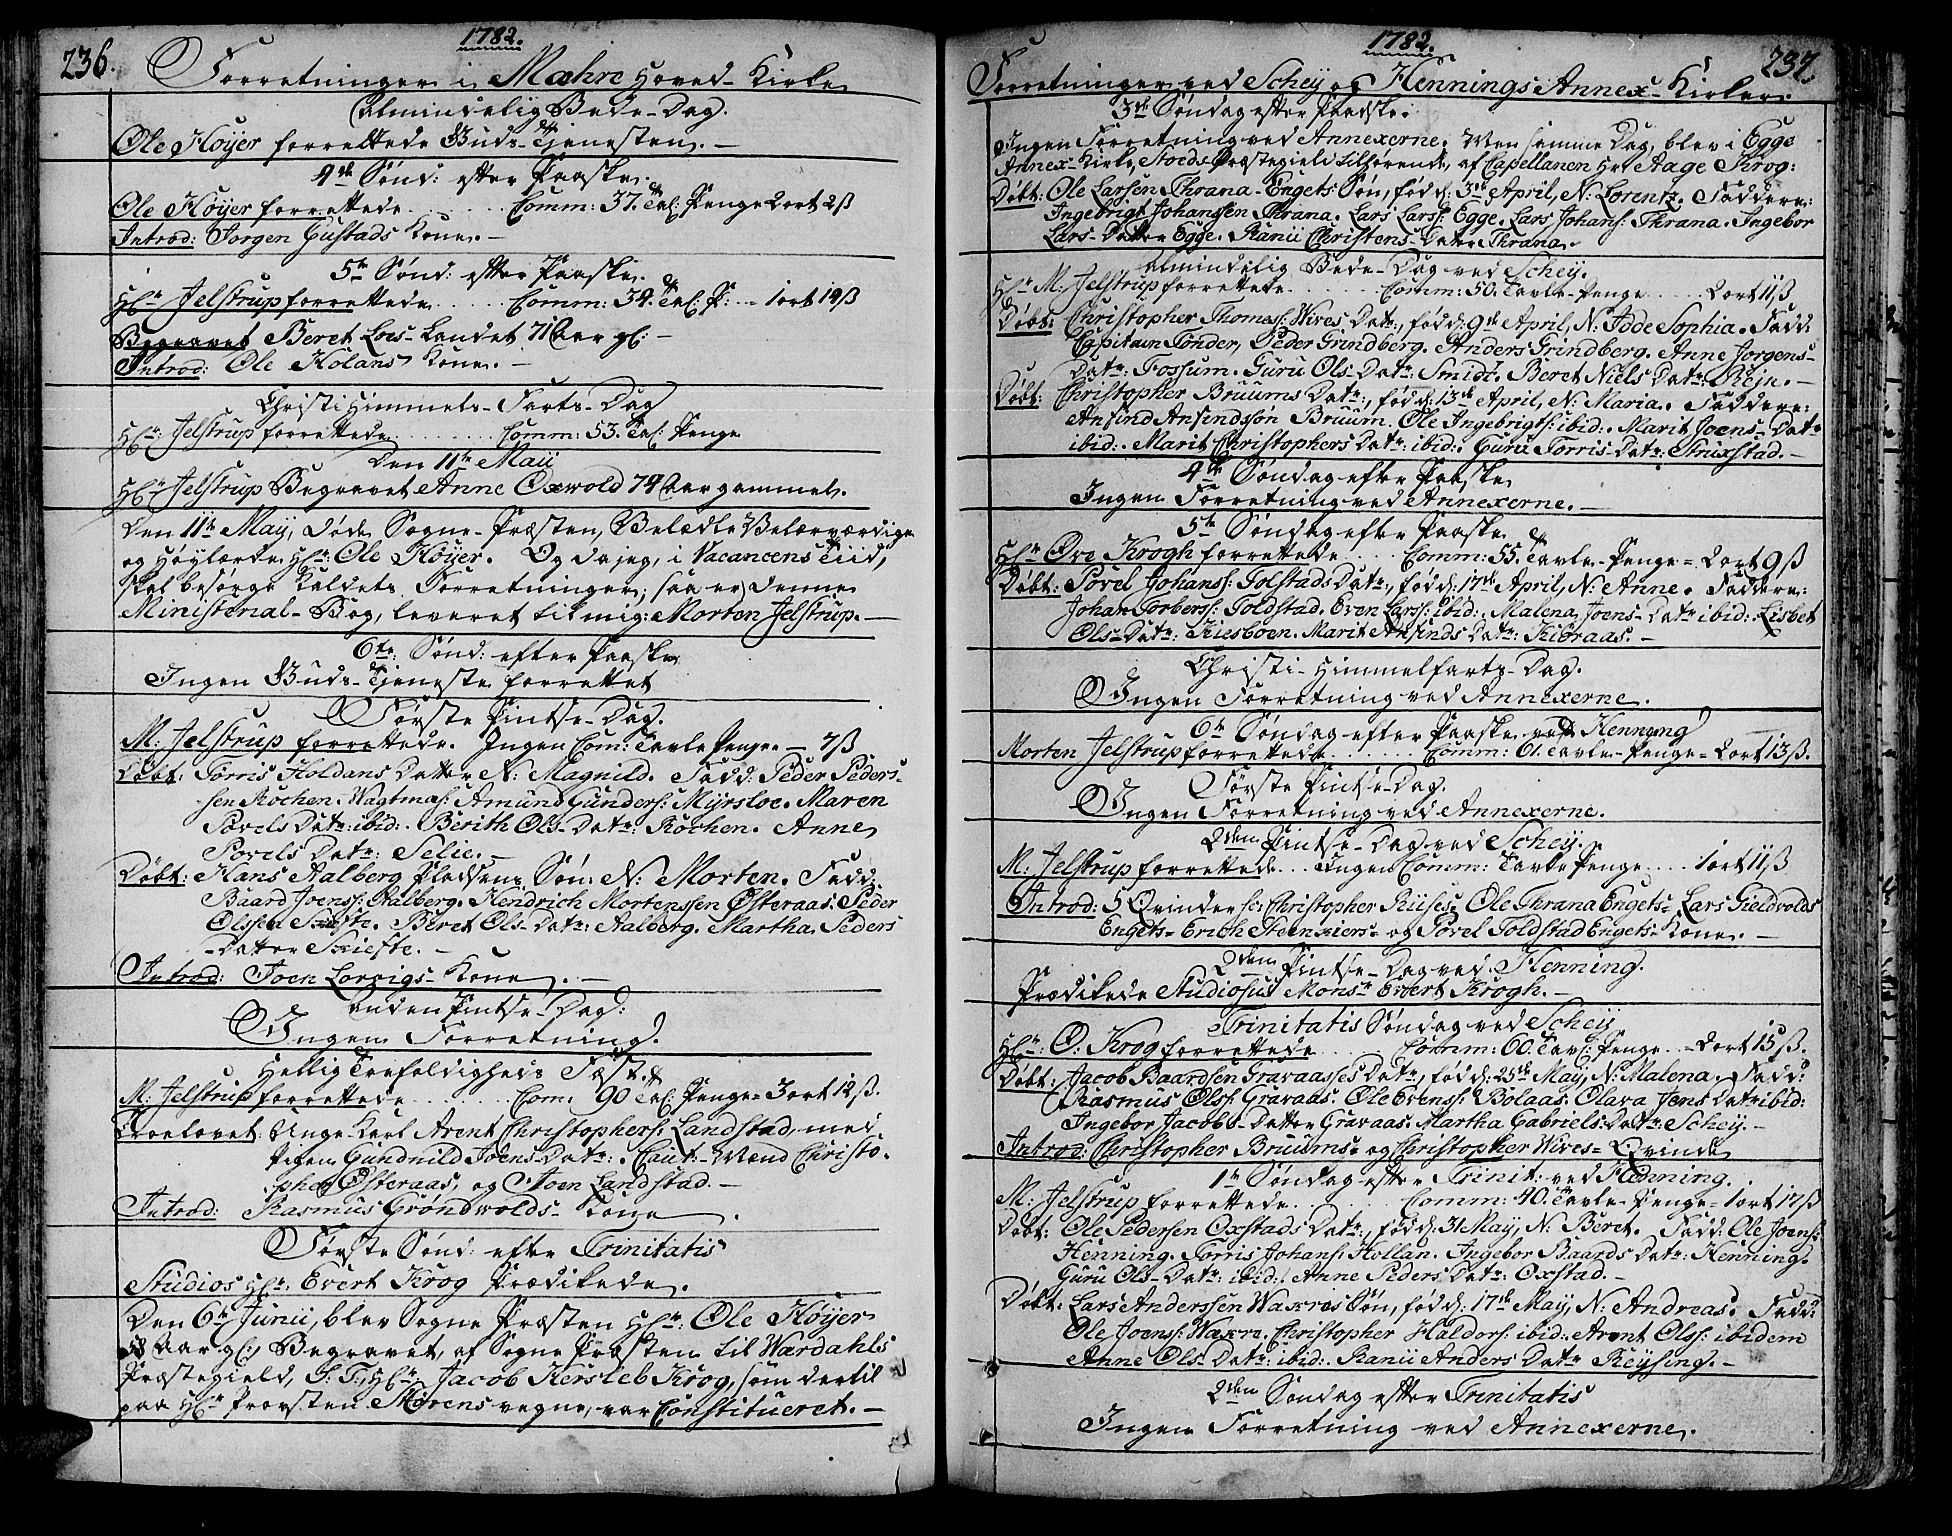 1782.
236.
Forretninger i Mæhre Hoved-Kirke
Almindelig Bede-Dag.
Ole Høyer forrettede Guds-Tjenesten. -
4de Sønd: efter Paaske.
Ole Høyer forrettede Comm: 37. Tafl. Penge 2 ort 2 ß
Introd: Jorgen Gustads Kone. -
5te Sønd: efter Paaske.
Hr. Jelstrup forrettede Comm: 34. Tafl. P: 1 ort 19 ß
Begravet Beret Loes-Landet 71 Aar gl: -
Introd: Ole Holans Kone. -
Christi Himmels-Farts-Dag
Hr. Jelstrup forrettede Comm: 53. Tafl. Penge
Den 11te Maii
Hr. Jelstrup Begravet Anne Oxwold 74 Aar gammel.
Den 11te Maij, døde Sogne-Præsten, Velædle Velærværdige
og Høylærde Hr. Ole Høyer. Og da jeg, i Vacancens Tiid,
skal besørge Kaldets Forretninger, saa er denne
Ministerial-Bog, leveret til mig: Morten Jelstrup. -
6te Sønd: efter Paaske
Ingen Guds-Tjeneste forrettet
Første Pintse-Dag.
M: Jelstrup forrettede. Ingen Com: Tavle Penge - 7 ß
Døbt: Torris Holdans Datter N: Magnild. Fadd: Peder Peders-
sen Kochen. Amund Gunders: Myrsloe. Maren
Povels Datr: ibid: Berith Ols-Datr: Kochen. Anne
Povels Datr: Selie. -
Døbt: Hans Aalberg Pladsens Søn N: Morten. Fadd:
Baard Joens: Aalberg. Hendrich Mortenssen Østeraas. Peder
Olssen Skiefte. Beret Ols-Datr: Aalberg. Martha Peders
-Datter Skiefte. -
Introd: Joen Lorvigs-Kone. -
Anden Pintse-Dag:
Ingen Forretning.
Hellig Trefoldigheds Fæst.
M: Jelstrup forrettede Com. 90 Tafl. Penge 3 ort 12 ß.
Troelovet: Unge Karl Arent Christophers: Landstad, med
Pigen Gundnild Joens-Datr: Caut:-Mænd Christo-
pher Østeraas, og Joen Landstad. -
Introd: Rasmus Grøndwolds-Kone.
Første Sønd: efter Trinitatis
Studios Hr: Evert Krog Prædikede.
Den 6te Junii, blev Sogne Præsten Hr: Ole Høyer
58 Aar gl:, Begravet, af Sogne Præsten til Wærdahls
Præstegield, S. T. Hr. Jacob Kersleb Krog, som dertil
paa Hr. Provsten Mørens vegne, var Constitueret. -
1782.
237.
Forretninger ved Schey og Hennings Annex-Kirker.
3die Søndag efter Paaske.
Ingen Forretning ved Annexerne. Men samme Dag, blev i Egge
Annex-Kirke, Stods Præstegield tilhørende, af Capellanen Hr Aage Krog:
Døbt: Ole Larsen Thrana-Engets Søn, fød d: 3die April, N: Lorentz. Faddere:
Ingebrigt Johanssen Thrana. Lars Lars: Egge. Lars Johans: Thrana. Ingebor
Lars-Datter Egge. Ranii Christens-Datr Thrana.
Almindelig Bede-Dag ved Schey.
Hr M: Jelstrup forrettede Comm: 50. Tavle-Penge 2 ort 11 ß
Døbt: Christopher Thomes: Wives Datr:, fød d: 9de April, N: Jode Sophia. Fadd:
Capitain Tonder, Peder Grindberg. Anders Grindberg. Anne Jorgens-
Datr: Fossum. Guru Ols-Datr: Smidt. Beret Niels Datr: Rejn. -
Døbt: Christopher Bruums Datr:, fød d: 13de April, N: Maria. Faddere:
Ansind Ansindssøn Bruum. Ole Ingebrigts: ibid: Marit Joens-Datr
ibid: Marit Christophers Datr: ibid: Guru Torris-Datr: Struxstad. -
4de Søndag efter Paaske
Ingen Forretning ved Annexerne. -
5te Søndag efter Paaske
Hr. Ove Krogh forrettede Comm: 55. Tavle-Penge = 2 ort 9 ß
Døbt: Povel Johans: Tolstads Datr:, fød d: 17de April, N: Anne. Faddere:
Johan Torbers: Toldstad. Even Lars: ibid: Malena Joens-Datr ibid: Lisbet
Ols-Datr: Kiesboen. Marit Ansinds Datr: Kibraas. -
Christi-Himmelfarts-Dag.
Ingen Forretning ved Annexerne.
6te Søndag efter Paaske ved Henning
Morten Jelstrup forrettede Comm: 61. Tavle-Penge = 2 ort 13 ß.
Første Pintse-Dag.
Ingen Forretning ved Annexerne.
2den Pintse-Dag ved Schey.
M: Jelstrup forrettede Ingen Comm: Tavle Penge 1 ort 11 ß
Introd: 5 Qvinder sc: Christopher Riises, Ole Thrana Engets- Lars Gieldvolds
Engets- Erich Steenkiers- og Povel Toldstad Engets-Kone. -
2den Pintse-Dag ved Henning.
Prædikede Studiosus Monsr Evert Krogh. -
Trinitatis Søndag ved Schey
Hr: O: Krog forrettede Comm: 60. Tavl: Penge 2 ort 15 ß.
Døbt: Jacob Baardsen Gravaasses Datr:, fød d: 25de May, N: Malena. Fadd:
Rasmus Ols: Gravaas. Ole Evens: Bolaas. Olava Jens Datr ibid:
Ingebor Jacobs-Datter Gravaas. Martha Gabriels: Datr: Schey. -
Introd: Christopher Bruums- og Christopher Wives- Qvinde
1te Søndag efter Trinit: ved Henning.
M: Jelstrup forrettede Comm: 40. Tavle-Penge = 1 ort 17 ß
Døbt: Ole Pedersen Oxstads Datr:, fød d: 31 May, N: Beret. Fadd: Ole Joens:
Henning. Torris Johans: Hollan. Ingebor Baards Datr: Henning.
Guru Ols-Datr: ibid: Anne Peders Datr: Oxstad. -
Døbt: Lars Anderssen Waxres Søn, fød d: 17de May, N: Andreas. Fadd:
Ole Joens: Waxre. Christopher Haldors: ibid: Arent Olss: ibidem
Anne Ols-Datr: ibid: Ranii Anders Datr Reysing. -
2den Søndag efter Trinitatis
Ingen Forretning ved Annexerne.